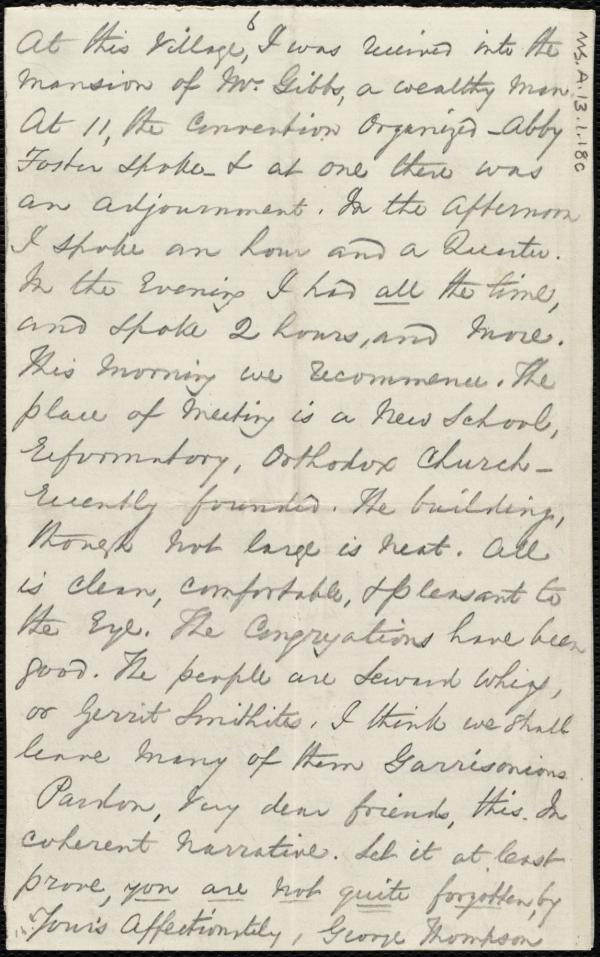 6
At this Village, I was received into the
Mansion of Mr. Gibbs, a wealthy man.
At 11, the Convention Organized - Abby
Foster spoke - & at one there was
an adjournment. In the afternoon
I spoke an hour and a Quarter.
In the Evening I had all the time,
and spoke 2 hours, and more.
This Morning we recommence. The
place of Meeting is a New School,
Reformatory, Orthodox Church -
recently founded. The building,
though not large is neat. All
is clean, comfortable, & pleasant to
the Eye. The Congregations have been
good. The people are Seward Whigs,
or Gerrit Smithites. I think we shall
leave Many of them Garrisonians
Pardon, Very dear friends, this In
coherent Narrative. Let it at least
prove, you are not quite forgotten, by
Yours Affectionately, George Thompson
Ms.A.1.3.1.180